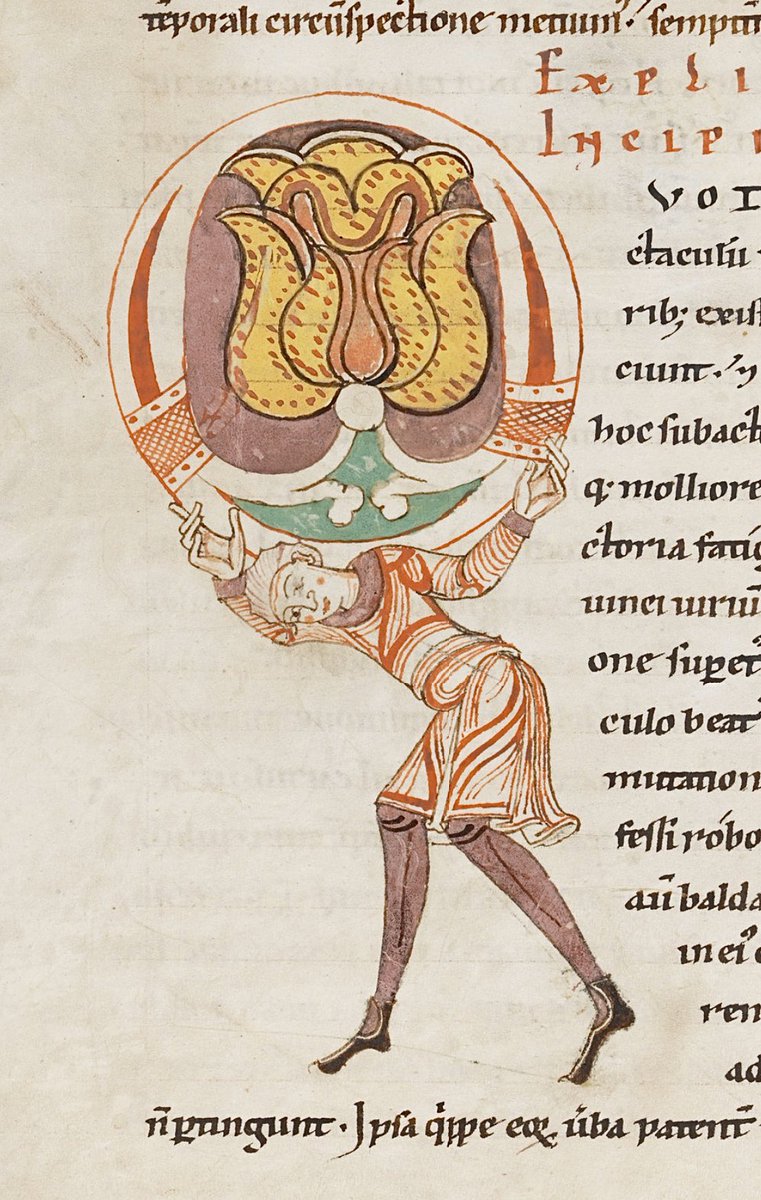 tēporali circūspectione metiunt᷒. sempit
Expli
Incip
VOT
ctaculū
rib; exist
ciunt.
hoc subact
q: molliore
ctoria fatig
uinei uirū
one suꝑet᷒
culo beat
mutation
fessi robo
aū balda
in ei᷒
ren
ad
n̄ ꝑtingunt. Ipsa qͥppe eoꝝ ūba patent